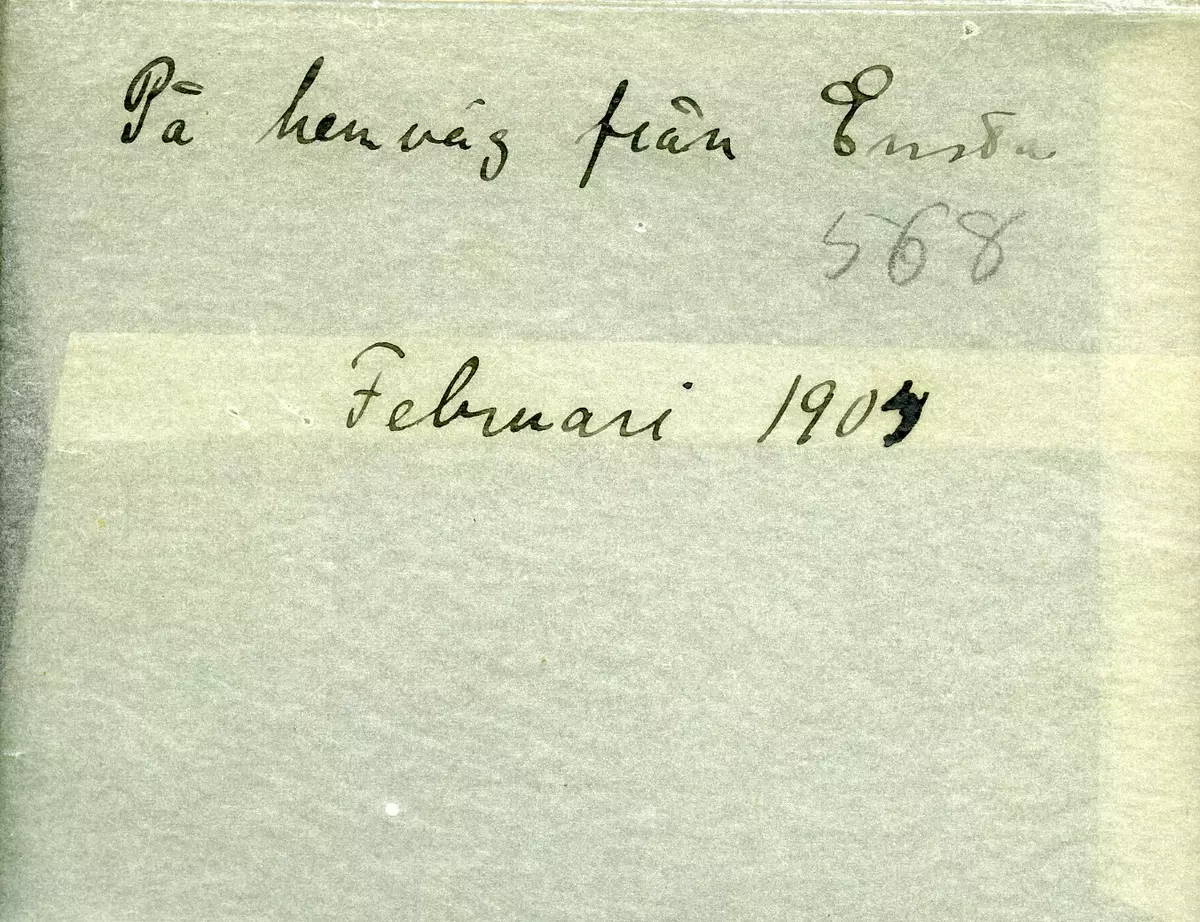 På hemväg från Ensta
568
Februari 1905